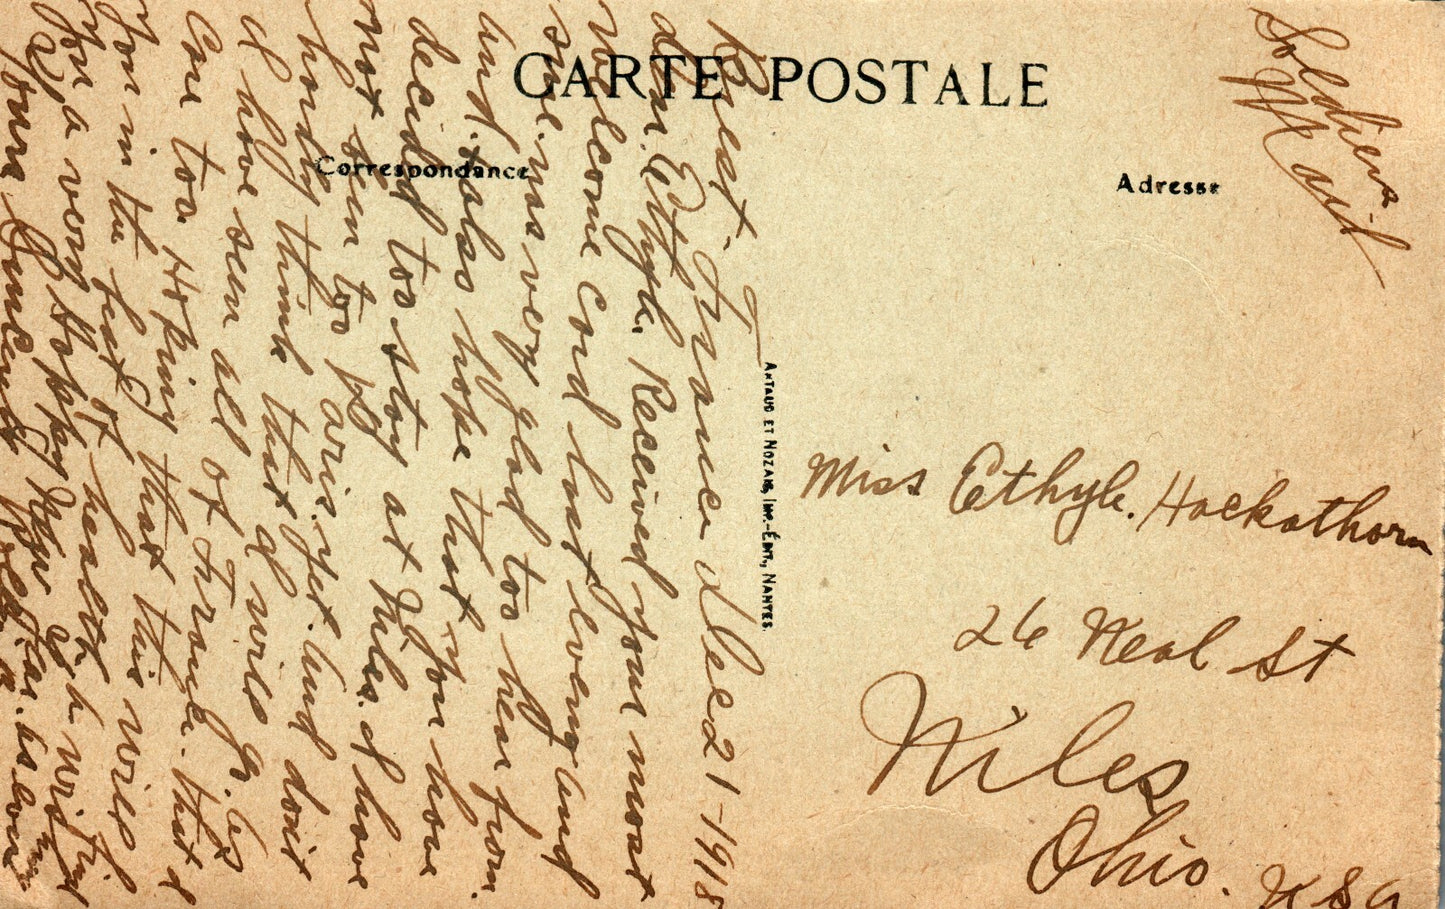 CARTE POSTALE
Correspondance
Adresse
Soldiers
Mail
Brest. France Dec 21-1918
dear Ethyle. Received your most
welcome Card last evening and
sure. was very glad too hear from
unt. also hope that you have
decided too stay at Niles. I have
not been too Paris. yet. and don't
hardly think that I will
I have seen all of France. that I
Care too. Hoping that this will find
you in the best of health, wishing
you a very Happy New
Yours Sincerely
ANTAUD ET NOZAIS, IMP.-ÉDIT., NANTES.
Miss Ethyle. Hackathorn
26 Neal St
Niles
Ohio. USA